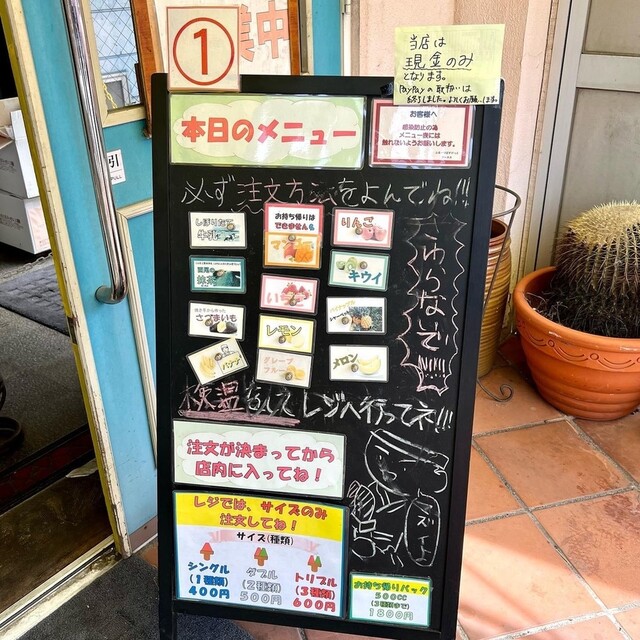 ①
業中
当店は
現金のみ
となります。
PayPayの取扱いは
終了しました。よろしくお願いします。
本日のメニュー
お客様へ
感染防止の為
メニュー板には
触れないようお願いします。
必ず注文方法をよんでね!!!
しぼりたて
牛乳
お持ち帰りは
できません
マンゴー
りんご
抹茶
いちご
キウイ
さつまいも
レモン
バナナ
グレープ
フルーツ
メロン
さわらないで!!!!
検温をして レジへ行ってネ!!!
注文が決まってから
店内に入ってね!
レジでは、サイズのみ
注文してね!
サイズ(種類)
シングル
(1種類)
400円
ダブル
(2種類)
500円
トリプル
(3種類)
600円
お持ち帰りパック
500cc
(3種類まで)
1800円
引